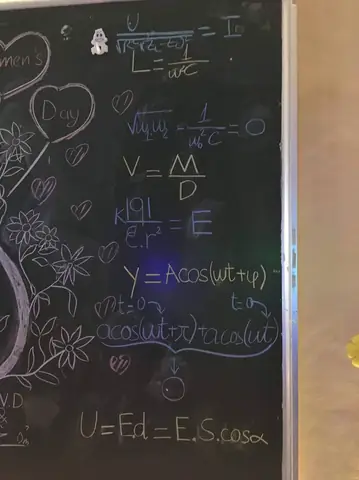 men's
Day
U / √(R²+(Z₁-Z₂)²) = I
L = 1 / ω²C
√ω₁ω₂ = 1 / ω₀²C = 0
V = M / D
K|q| / ε.r² = E
y = Acos(ωt+φ)
t=0 t=0
acos(ωt+π)+acos(ωt)
0
V.D
U = E.d = E.S.cosα